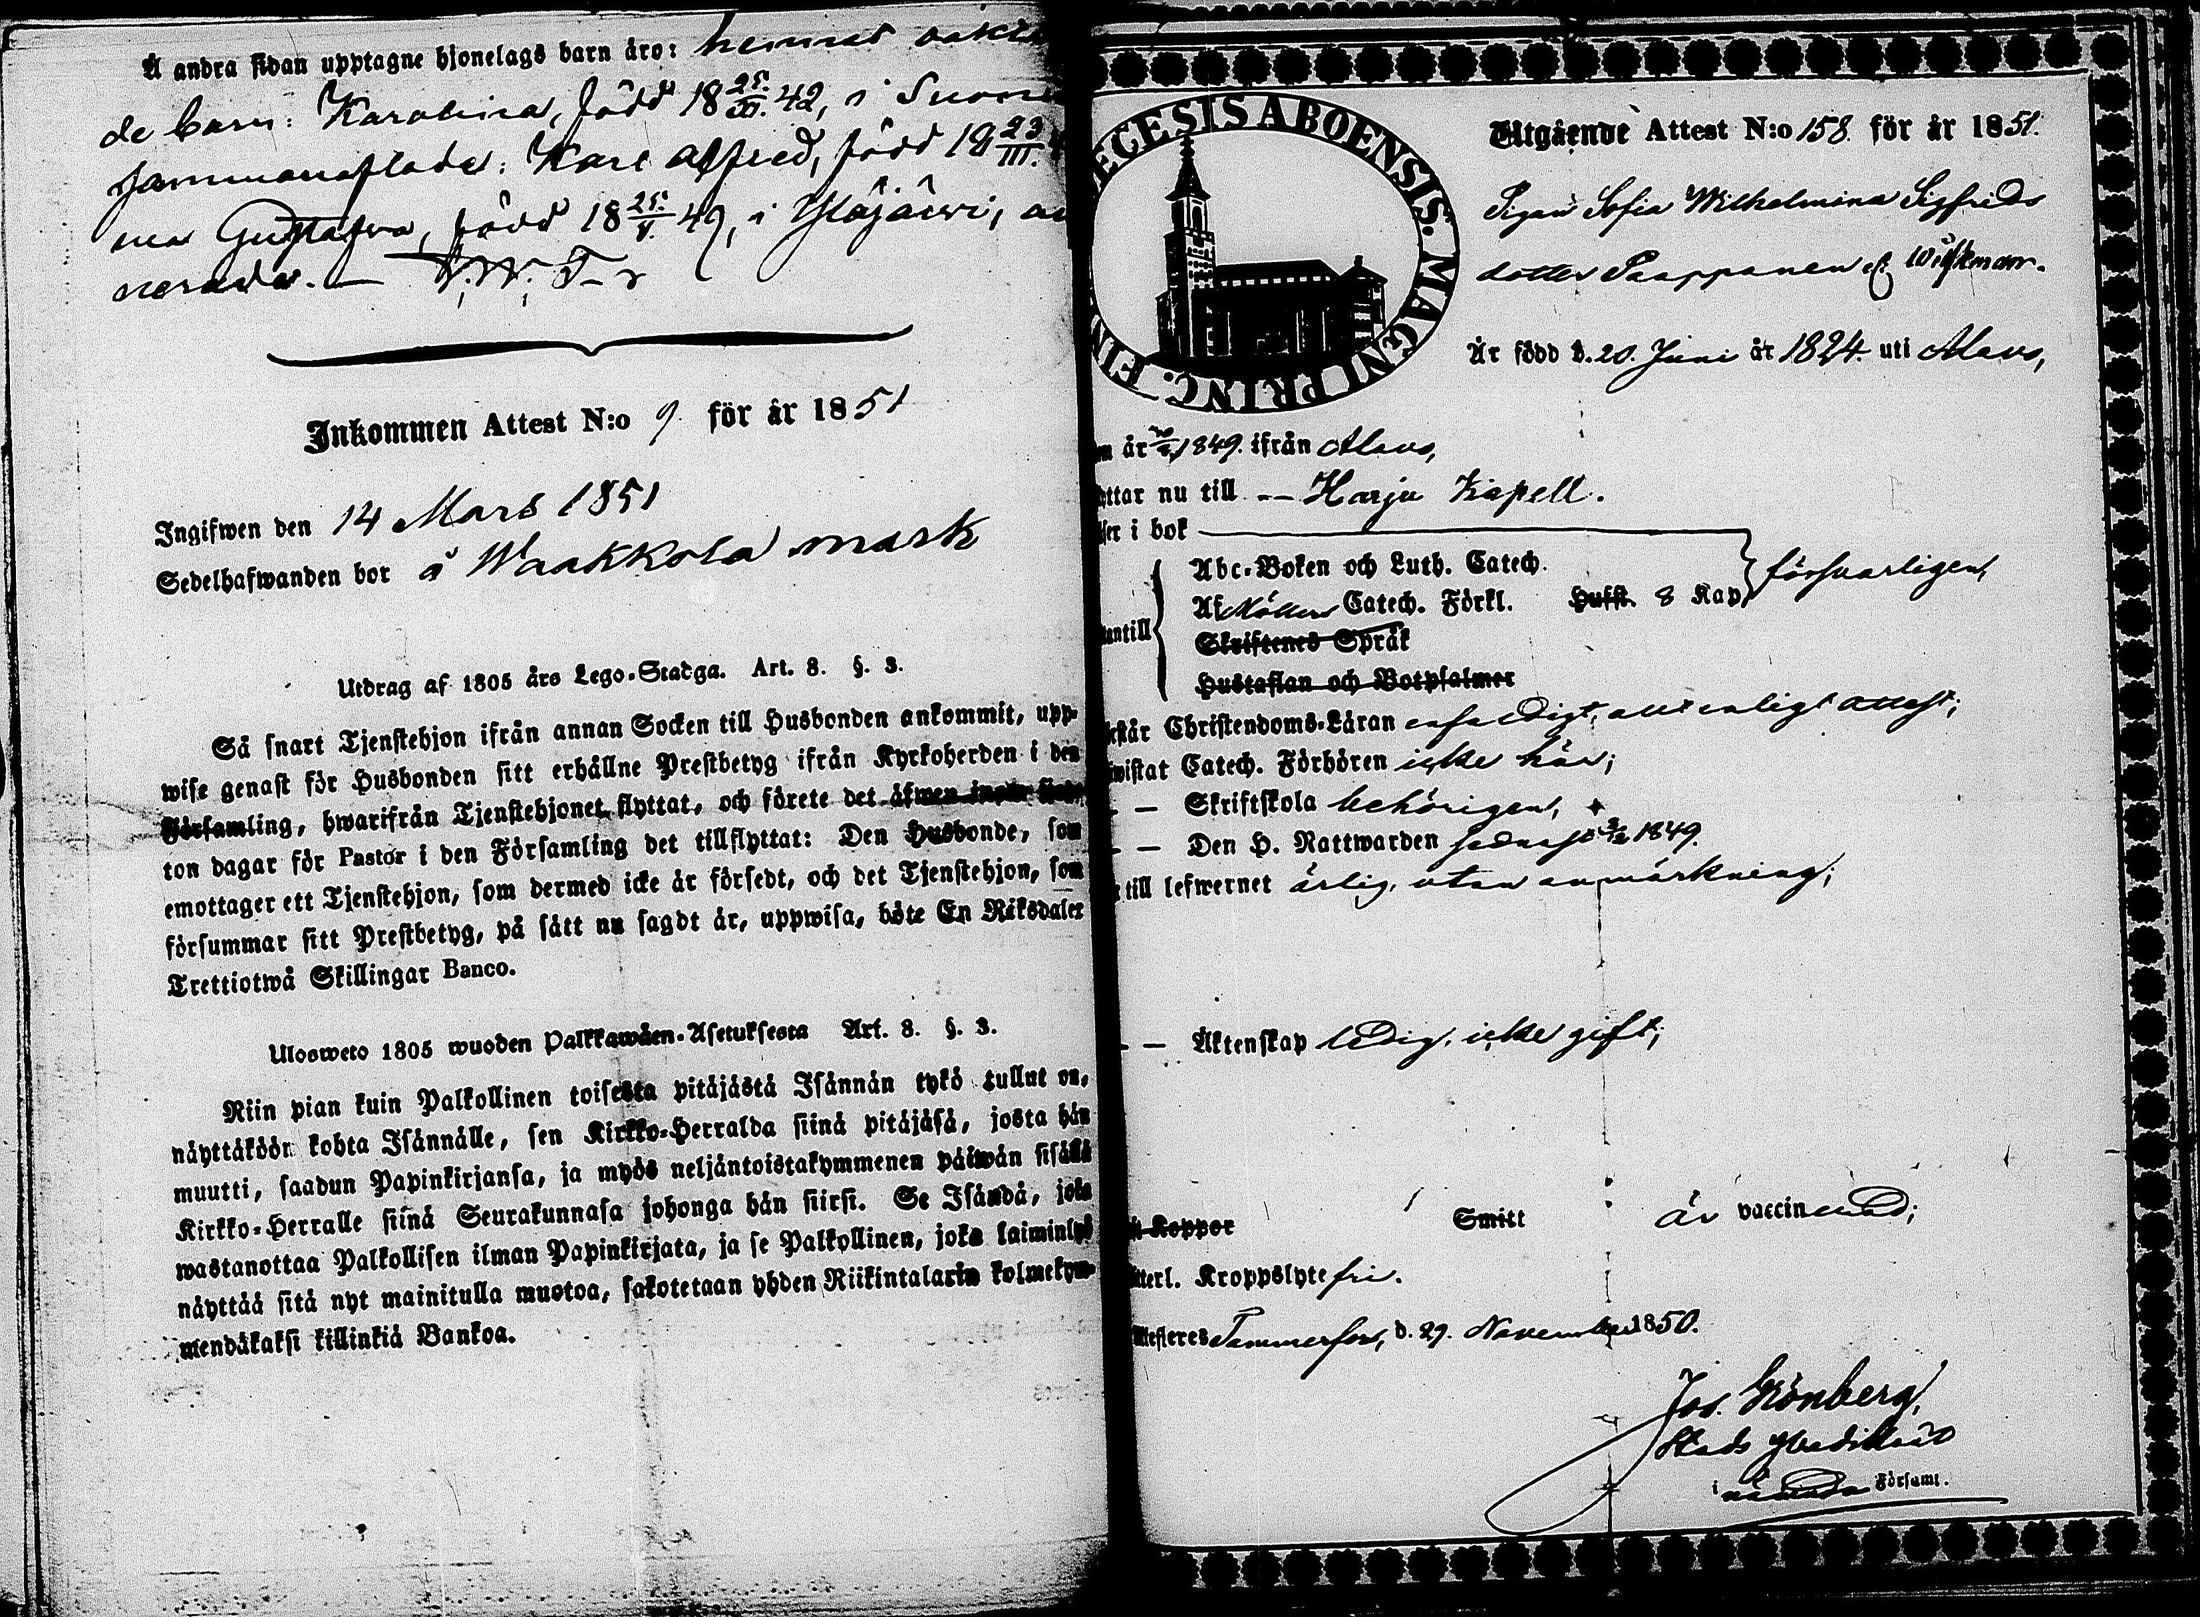 Å andra sidan upptagne hjonelags barn äro: hennes oäkta
de barn: Karolina, född 18 25/XI. 42, i Suoni
Karl Alfred, född 18 23/III.
na Gustafva, född 18 25/V. 49, i Ylöjärvi,
nerade. —
Inkommen Attest N:o 9. för år 1851
Ingifwen den 14 Mars 1851
Sedelhafwanden bor å Waakkola mark
Utdrag af 1805 års Lego-Stadga. Art. 8. §. 3.
Så snart Tjenstehjon ifrån annan Socken till Husbonden ankommit, upp-
wise genast för Husbonden sitt erhållne Prestbetyg ifrån Kyrkoherden i den
Församling, hwarifrån Tjenstehjonet flyttat, och förete det äfwen inom fjor-
ton dagar för Pastor i den Församling det tillflyttat: Den Husbonde, som
emottager ett Tjenstehjon, som dermed icke är försedt, och det Tjenstehjon, som
försummar sitt Prestbetyg, på sätt nu sagdt är, uppwisa, böte En Riksdaler
Trettiotwå Skillingar Banco.
Ulosweto 1805 wuoden Palkkawäen-Asetuksesta Art. 8. §. 3.
Niin pian kuin Palkollinen toisesta pitäjästä Isännän tykö tullut on,
näyttäköön kohta Isännälle, sen Kirkko-Herralda siinä pitäjäsä, josta hän
muutti, saadun Papinkirjansa, ja myös neljäntoistakymmenen päiwän sisällä
Kirkko-Herralle siinä Seurakunnasa johonga hän siirsi. Se Isändä, joka
wastanottaa Palkollisen ilman Papinkirjata, ja se Palkollinen, joka laiminlyö
näyttää sitä nyt mainitulla muotoa, sakotetaan yhden Riikintalarin kolmekym-
mendäkaksi killinkiä Bankoa.
ECESIS ABOENSIS. MAGNI PRINC. FIN
Utgående Attest N:o 158. för år 1851.
Pigan Sofia Wilhelmina Sigfrids
dotter Paappanen
Är född d. 20. Juni år 1824. uti Alavo,
n år 1849. ifrån Alavo,
ttar nu till — Harju Kapell.
ser i bok
Abc-Boken och Luth. Catech.
Af Möllers Catech. Förkl. Hufst. 8 Kap. försvarligen,
antill
Skriftenes Språk
Hustaflan och Botpsalmer
rstår Christendoms-Läran enfaldigt, allt enligt attest;
wistat Catech. Förhören icke här;
— Skriftskola behörigen,
— — Den H. Nattwarden sednast 1849.
till lefwernet ärlig, utan anmärkning;
— — Äktenskap ledig, icke gift;
t Koppor Smitt är vaccinerad;
tterl. Kroppslyte fri.
Attesteres Tammerfors, d. 29. November 1850.
Jos. Grönberg,
Stads
i nämnda Församl.